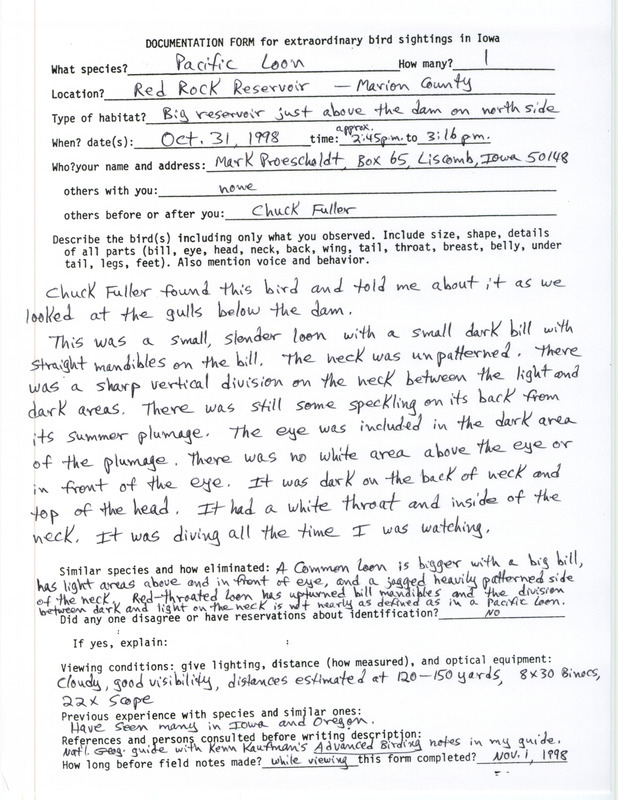 DOCUMENTATION FORM for extraordinary bird sightings in Iowa
What species? Pacific Loon How many? 1
Location? Red Rock Reservoir — Marion County
Type of habitat? Big reservoir just above the dam on north side
When? date(s): Oct. 31, 1998 time: approx. 2:45p.m. to 3:16 p.m.
Who?your name and address: Mark Proescholdt, Box 65, Liscomb, Iowa 50148
others with you: none
others before or after you: Chuck Fuller
Describe the bird(s) including only what you observed. Include size, shape, details
of all parts (bill, eye, head, neck, back, wing, tail, throat, breast, belly, under
tail, legs, feet). Also mention voice and behavior.
Chuck Fuller found this bird and told me about it as we
looked at the gulls below the dam.
This was a small, slender loon with a small dark bill with
straight mandibles on the bill. The neck was unpatterned. There
was a sharp vertical division on the neck between the light and
dark areas. There was still some speckling on its back from
its summer plumage. The eye was included in the dark area
of the plumage. There was no white area above the eye or
in front of the eye. It was dark on the back of neck and
top of the head. It had a white throat and inside of the
neck. It was diving all the time I was watching.
Similar species and how eliminated: A Common Loon is bigger with a big bill,
has light areas above and in front of eye, and a jagged heavily patterned side
of the neck. Red-throated Loon has upturned bill mandibles and the division
between dark and light on the neck is not nearly as defined as in a Pacific Loon.
Did any one disagree or have reservations about identification? NO
If yes, explain:
Viewing conditions: give lighting, distance (how measured), and optical equipment:
Cloudy, good visibility, distances estimated at 120–150 yards, 8x30 Binocs,
22x Scope
Previous experience with species and similar ones:
Have seen many in Iowa and Oregon.
References and persons consulted before writing description:
Nat'l. Geog. guide with Kenn Kaufman's Advanced Birding notes in my guide.
How long before field notes made? while viewing this form completed? NOV. 1, 1998